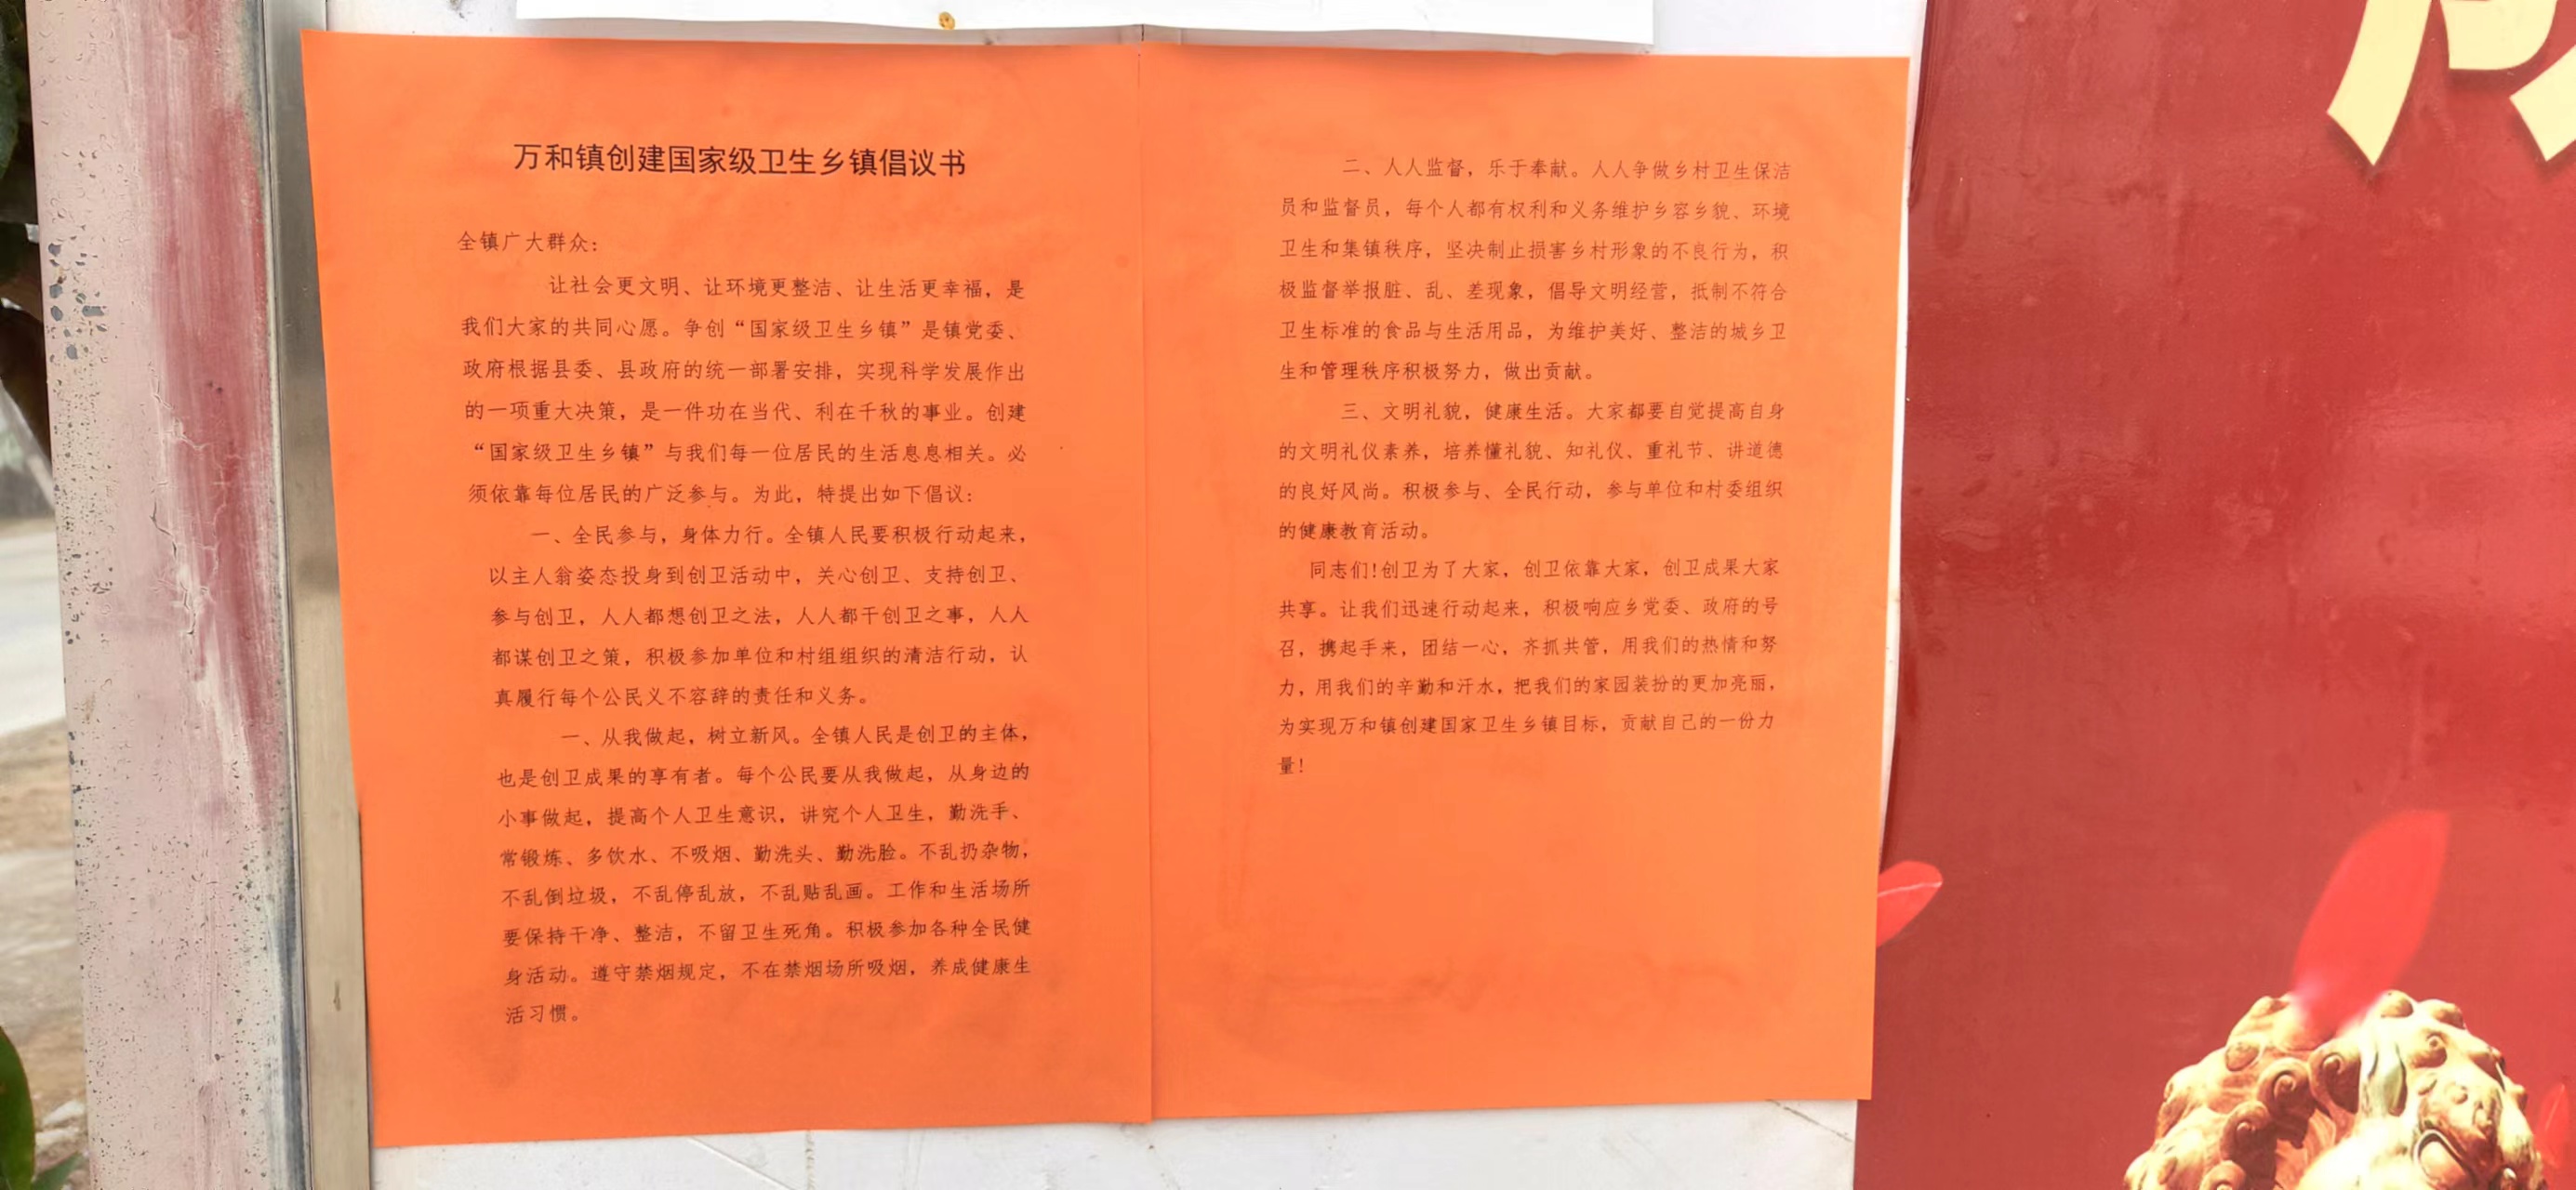 万和镇创建国家级卫生乡镇倡议书
全镇广大群众：
让社会更文明、让环境更整洁、让生活更幸福，是
我们大家的共同心愿。争创“国家级卫生乡镇”是镇党委、
政府根据县委、县政府的统一部署安排，实现科学发展作出
的一项重大决策，是一件功在当代、利在千秋的事业。创建
“国家级卫生乡镇”与我们每一位居民的生活息息相关。必
须依靠每位居民的广泛参与。为此，特提出如下倡议：
一、全民参与，身体力行。全镇人民要积极行动起来，
以主人翁姿态投身到创卫活动中，关心创卫、支持创卫、
参与创卫，人人都想创卫之法，人人都干创卫之事，人人
都谋创卫之策，积极参加单位和村组组织的清洁行动，认
真履行每个公民义不容辞的责任和义务。
一、从我做起，树立新风。全镇人民是创卫的主体，
也是创卫成果的享有者。每个公民要从我做起，从身边的
小事做起，提高个人卫生意识，讲究个人卫生，勤洗手、
常锻炼、多饮水、不吸烟、勤洗头、勤洗脸。不乱扔杂物，
不乱倒垃圾，不乱停乱放，不乱贴乱画。工作和生活场所
要保持干净、整洁，不留卫生死角。积极参加各种全民健
身活动。遵守禁烟规定，不在禁烟场所吸烟，养成健康生
活习惯。
二、人人监督，乐于奉献。人人争做乡村卫生保洁
员和监督员，每个人都有权利和义务维护乡容乡貌、环境
卫生和集镇秩序，坚决制止损害乡村形象的不良行为，积
极监督举报脏、乱、差现象，倡导文明经营，抵制不符合
卫生标准的食品与生活用品，为维护美好、整洁的城乡卫
生和管理秩序积极努力，做出贡献。
三、文明礼貌，健康生活。大家都要自觉提高自身
的文明礼仪素养，培养懂礼貌、知礼仪、重礼节、讲道德
的良好风尚。积极参与、全民行动，参与单位和村委组织
的健康教育活动。
同志们！创卫为了大家，创卫依靠大家，创卫成果大家
共享。让我们迅速行动起来，积极响应乡党委、政府的号
召，携起手来，团结一心，齐抓共管，用我们的热情和努
力，用我们的辛勤和汗水，把我们的家园装扮的更加亮丽，
为实现万和镇创建国家卫生乡镇目标，贡献自己的一份力
量！